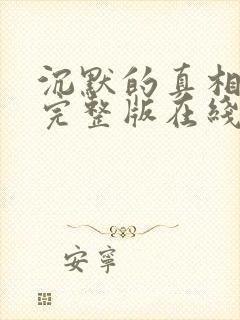 沉默的真相
完整版在綫
安寧